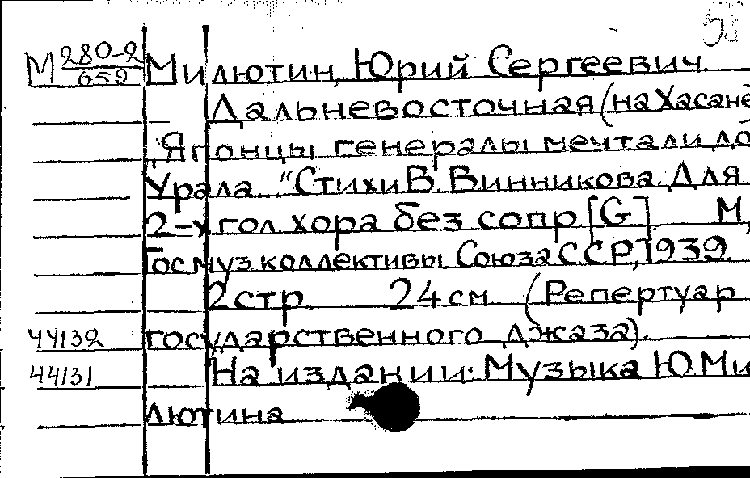 М 280-2
659
Милютин, Юрий Сергеевич
Дальневосточная (на Хасане)
"Японцы генералы мечтали до
Урала.." Стихи В. Винникова. Для
2-х гол. хора без сопр. [G] М,
Гос муз коллективы Союза ССР, 1939
2 стр 24 см (Репертуар
44132 государственного джаза).
44131 На издании: Музыка Ю. Ми-
лютина